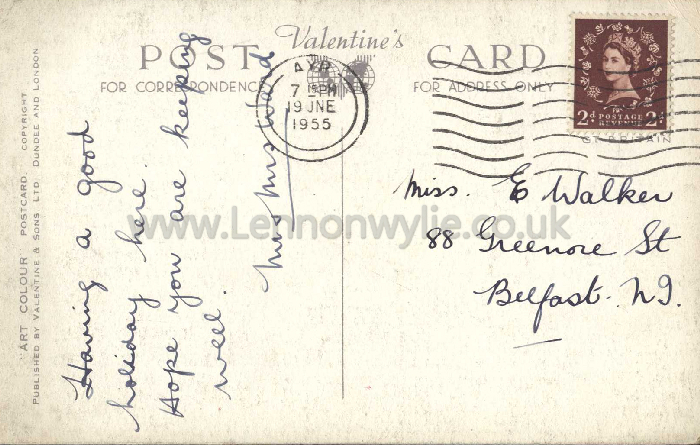 Valentine's
POST CARD
FOR CORRESPONDENCE
FOR ADDRESS ONLY
AYR
7 PM
19 JNE
1955
2d POSTAGE 2d
REVENUE
GT BRITAIN
"ART COLOUR" POSTCARD. COPYRIGHT
PUBLISHED BY VALENTINE & SONS LTD. DUNDEE AND LONDON
Having a good
holiday here.
Hope you are keeping
well.
Mrs Ward
Miss. E Walker
88 Greenore St
Belfast. N.I.
www.Lennonwylie.co.uk